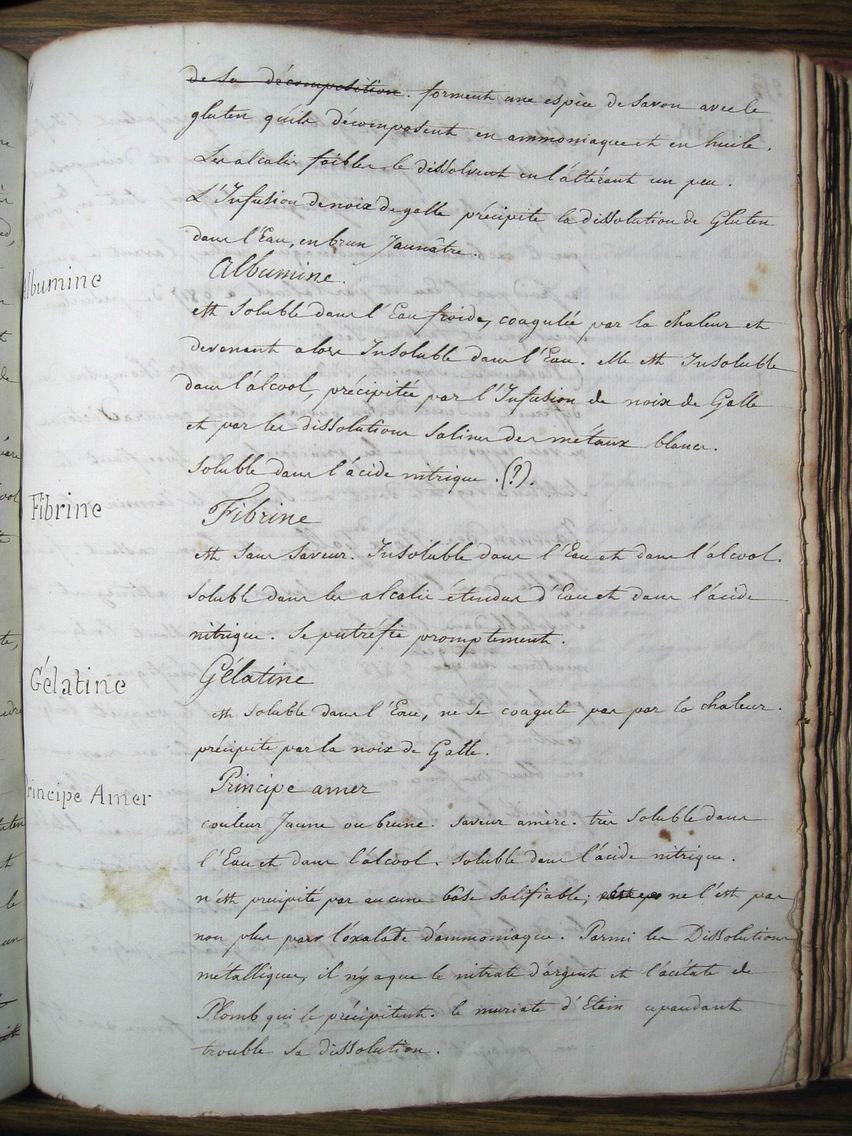 de sa décomposition. forment une espèce de savon avec le
gluten qu'ils décomposent en ammoniaque et en huile.
Les alcalis foibles le dissolvent en l'altérant un peu.
L'Infusion de noix de galle précipite la dissolution de Gluten
dans l'Eau, en brun Jaunâtre.
Albumine
Albumine.
est soluble dans l'Eau froide, coagulée par la chaleur et
devenant alors Insoluble dans l'Eau. elle est Insoluble
dans l'alcool, précipitée par l'Infusion de noix de Galle
et par les dissolutions salines des métaux blancs.
soluble dans l'acide nitrique. (?).
Fibrine
Fibrine
est sans saveur. Insoluble dans l'Eau et dans l'alcool.
soluble dans les alcalis étendus d'Eau et dans l'acide
nitrique. se putréfie promptement.
Gélatine
Gélatine
est soluble dans l'Eau, ne se coagule pas par la chaleur.
précipite par la noix de Galle.
Principe Amer
Principe amer
couleur Jaune ou brune. saveur amère. très soluble dans
l'Eau et dans l'alcool. soluble dans l'acide nitrique.
n'est précipité par aucune base salifiable; ne l'est pas
non plus par l'oxalate d'ammoniaque. Parmi les Dissolutions
métalliques, il n'y a que le nitrate d'argent et l'acétate de
Plomb qui le précipitent. le muriate d'Etain cependant
trouble sa dissolution.